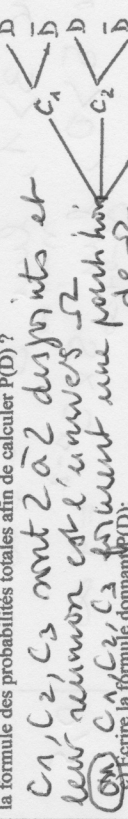 la formule des probabilités totales afin de calculer P(D) ?
C1, C2, C3 sont 2 à 2 disjoints et
leur réunion est l'univers Ω
ou C1, C2, C3 forment une partition
de Ω
e) Ecrire la formule donnant P(D):
C1
D
D̄
C2
D
D̄